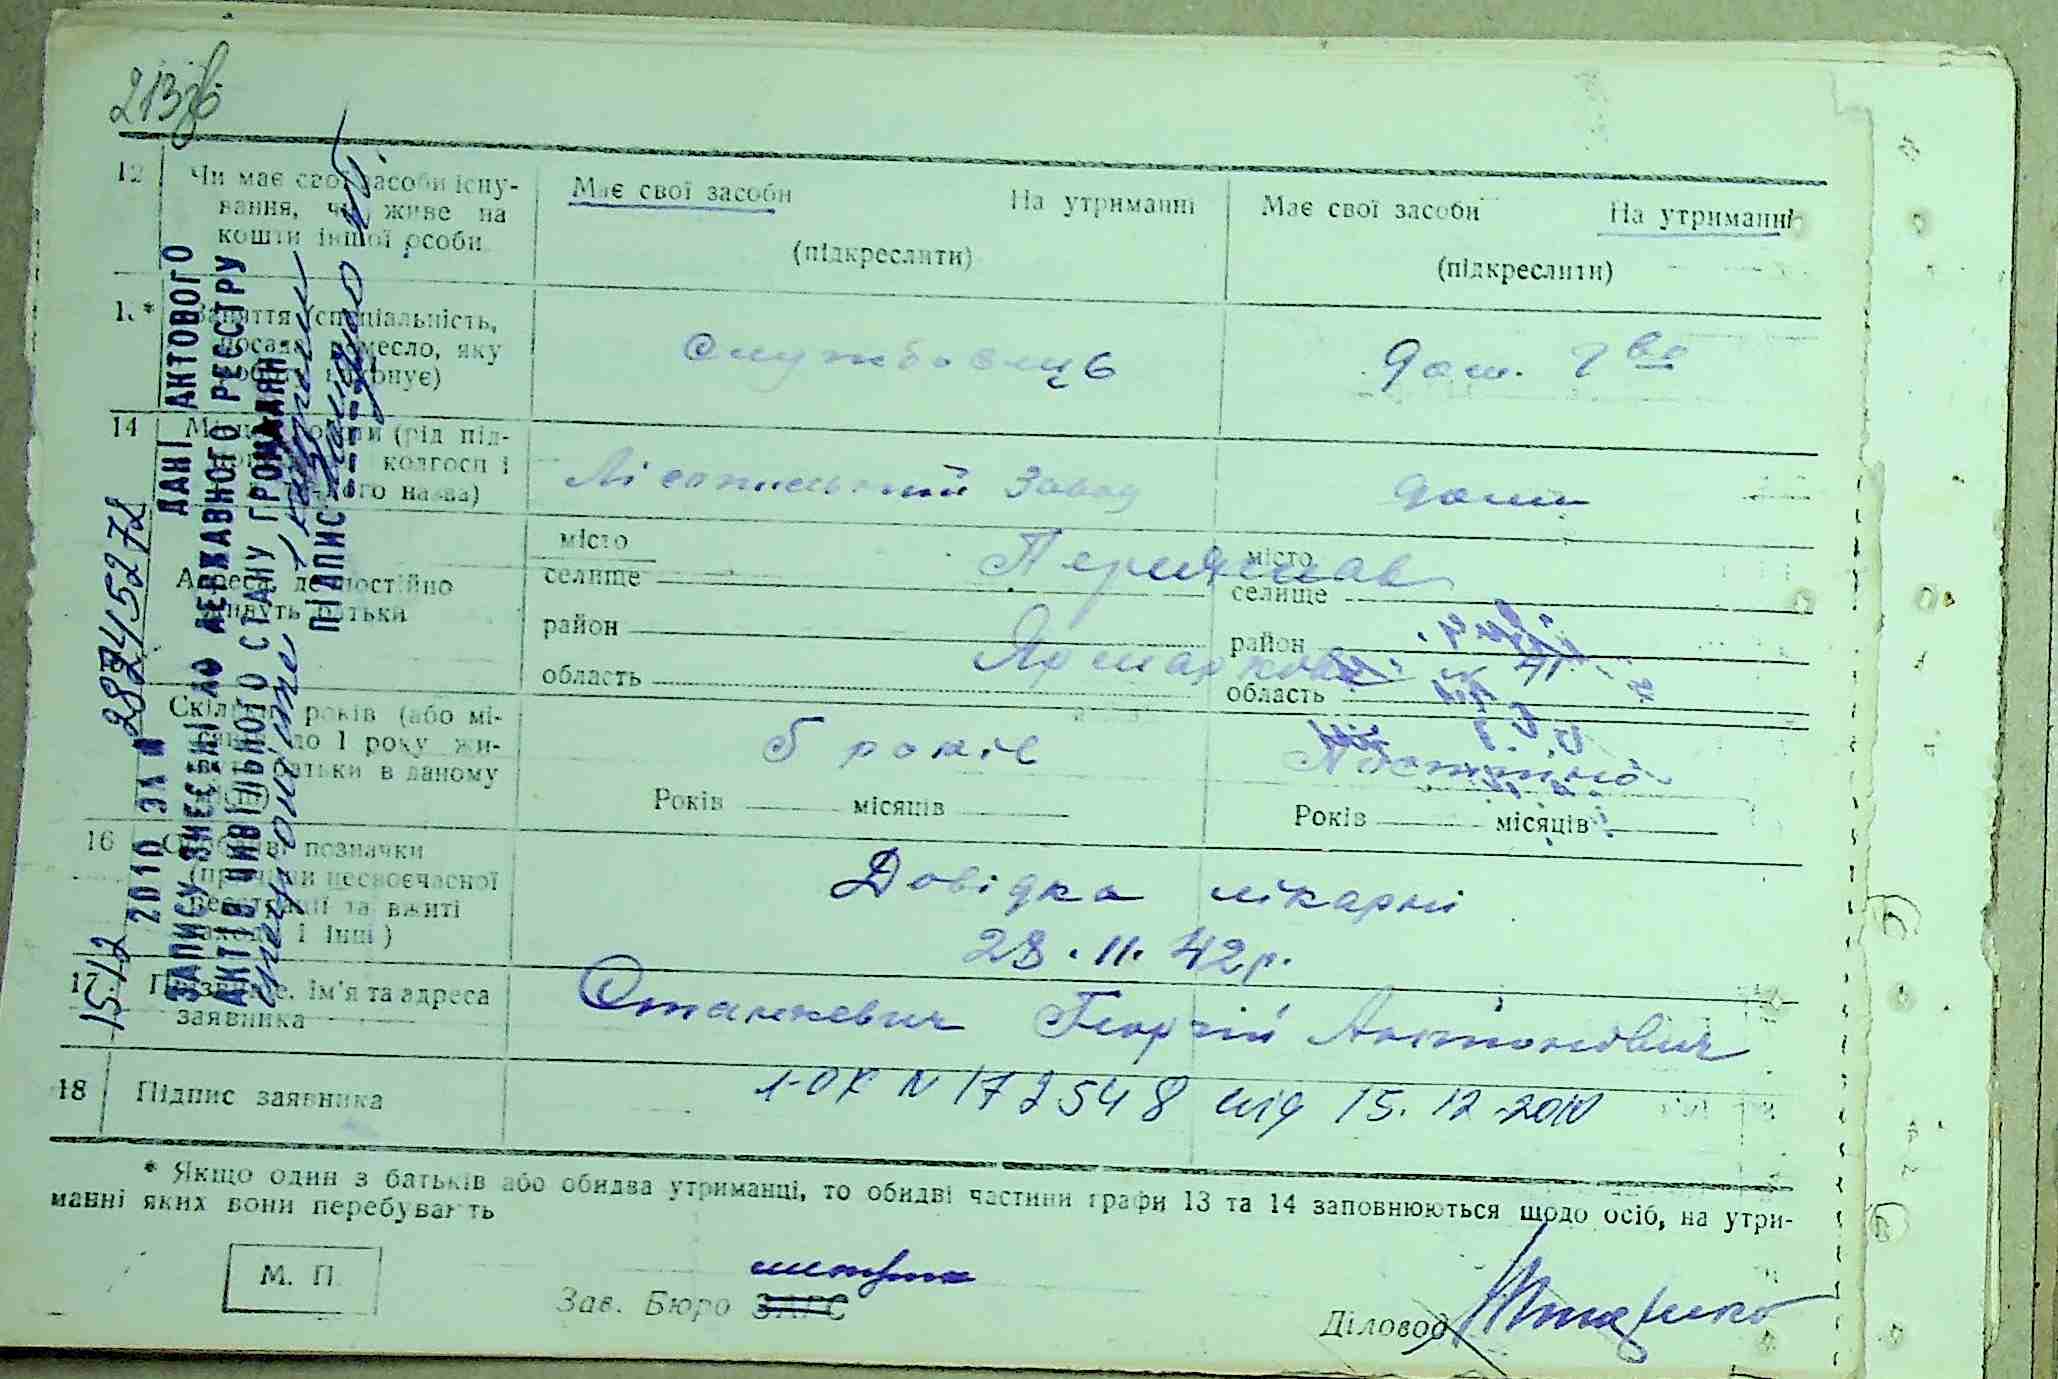 213зв
12 Чи має свої засоби існу- Має свої засоби На утриманні Має свої засоби На утриманні
вання, чи живе на
кошти іншої особи (підкреслити) (підкреслити)
Заняття (спеціальність,
посада, ремесло, яку
роботу виконує) Службовець Дом. г-во
14 Місце роботи (рід під-
колгосп і
його назва) Лісопильний завод дома
Адреса, де постійно
живуть батьки
місто Переяслав місто
селище селище
район район
область Ярмаркова область
Скільки років (або мі-
сяців до 1 року жи-
вуть батьки в даному 5 років Постійно
Років місяців Років місяців
16 Особливі позначки
(причини несвоєчасної
реєстрації та вжиті
заходи і інші) Довідка лікарні
28.11.42р.
17 Прізвище, ім'я та адреса
заявника Станкевич Георгій Антонович
18 Підпис заявника 1-ОК N 172548 від 15.12.2010
* Якщо один з батьків або обидва утриманці, то обидві частини графи 13 та 14 заповнюються щодо осіб, на утри-
манні яких вони перебувають
М. П.
Зав. Бюро ЗАГС Діловод
15.12 2010 ЗА №
ДАНІ АКТОВОГО
ЗАПИСУ ВНЕСЕНІ ДО ДЕРЖАВНОГО РЕЄСТРУ
АКТІВ ЦИВІЛЬНОГО СТАНУ ГРОМАДЯН
ПІДПИС